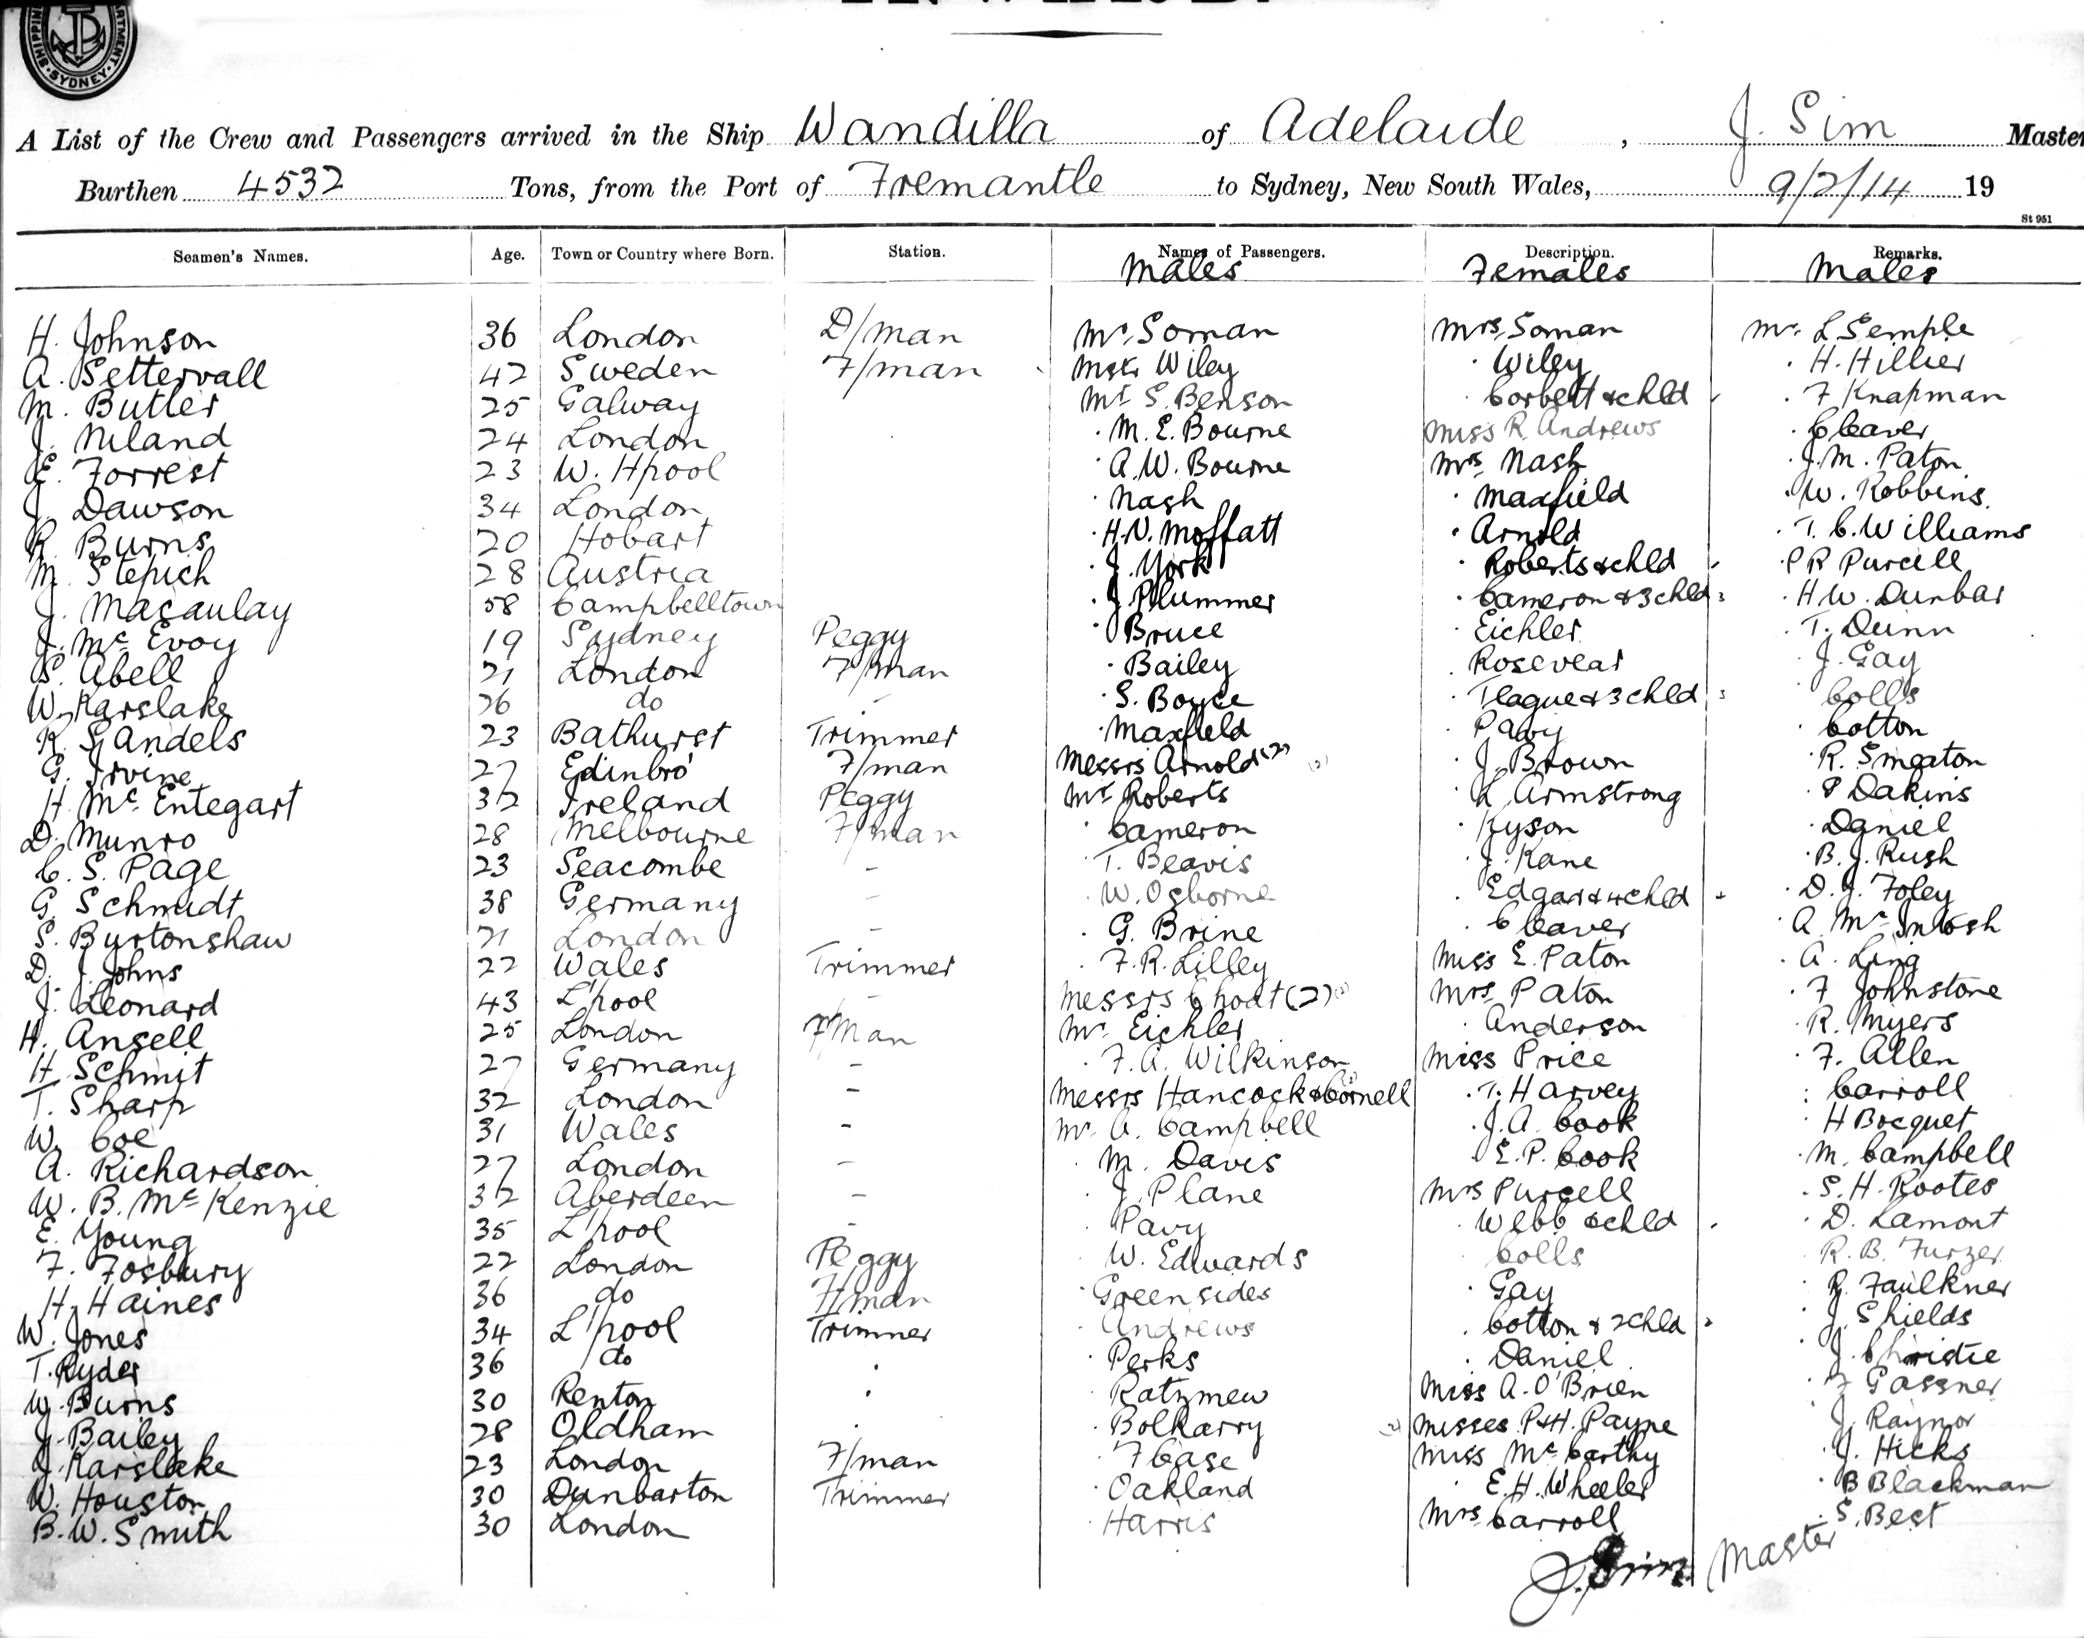 SHIPPING
SYDNEY
A List of the Crew and Passengers arrived in the Ship Wandilla of Adelaide, J. Sim Master
Burthen 4532 Tons, from the Port of Fremantle to Sydney, New South Wales, 9/2/14 19
St 951
Seamen's Names. Age. Town or Country where Born. Station. Names of Passengers. Description. Remarks.
Males Females Males
H. Johnson 36 London D/man Mr. Soman Mrs. Soman Mr. L Semple
A. Settervall 42 Sweden F/man Mstr Wiley · Wiley · H. Hillier
M. Butler 25 Galway Mr. S. Benson · Corbett & chld · F Knapman
J. Niland 24 London · M. E. Bourne Miss R. Andrews · Cleaver
E. Forrest 23 W. Hpool · A. W. Bourne Mrs. Nash · J. M. Paton
J. Dawson 34 London · Nash · Maxfield · W. Robbins
R. Burns 20 Hobart · H. N. Moffatt · Arnold · T. C. Williams
M. Stepich 28 Austria · J. York · Roberts & chld · P R Purcell
J. Macaulay 58 Campbelltown · J Plummer · Cameron & 3 chld 3 · H. W. Dunbar
J. Mc Evoy 19 Sydney Peggy · Bruce · Eichler · T. Dunn
S. Abell 21 London F/man · Bailey · Rosevear · J. Gay
W. Karslake 26 do - · S. Boyce · Teague & 3 chld 3 · Colls
K. Sandels 23 Bathurst Trimmer · Maxfield · Pavy · Cotton
G. Irvine 27 Edinbro' F/man Messrs Arnold (2) (2) · J. Brown · R. Smeaton
H. Mc Entegart 32 Ireland Peggy Mr. Roberts · L Armstrong · P Dakins
D. Munro 28 Melbourne F/man · Cameron · Kyson · Daniel
C. S. Page 23 Seacombe - · T. Beavis · J. Kane · B. J. Rush
G. Schmidt 38 Germany - · W. Osborne · Edgar & 4 chld 4 · D. J. Foley
S. Byrtonshaw 21 London - · G. Brine · Cleaver · A Mc Intosh
D. J. Johns 22 Wales Trimmer · F. R. Lilley Miss E. Paton · A. Ling
J. Leonard 43 L'pool - Messrs Choat (2) Mrs. Paton · F Johnstone
H. Ansell 25 London F/Man Mr. Eichler · Anderson · R. Myers
H Schmit 27 Germany - · F. A. Wilkinson Miss Price · F. Allen
T. Sharp 32 London - Messrs Hancock & Cornell · T. Harvey : Carroll
W. Coe 31 Wales - Mr. C. Campbell · J. A. Cook · H Bocquet
A. Richardson 27 London - · M. Davis · E. P. Cook · M. Campbell
W. B. Mc Kenzie 32 Aberdeen - · J. Plane Mrs Purcell · S. H. Rootes
E. Young 35 L'pool - · Pavy · Webb & chld · D. Lamont
F. Fosbury 22 London Peggy · W. Edwards · Colls · R. B. Furzer
H. Haines 36 do F/man · Greensides · Gay · R. Faulkner
W. Jones 34 L'pool Trimmer · Andrews · Cotton & 2 chld 2 · J. Shields
T. Ryder 36 do · · Perks · Daniel · J. Christie
W. Burns 30 Renton · · Ratzmew Miss A. O'Brien · F Gassner
J. Bailey 28 Oldham · · Bolkarry (2) Misses P & H. Payne · J. Raynor
J. Karslake 23 London F/man · F Case Miss Mc Carthy · J. Hicks
W. Houston 30 Dunbarton Trimmer · Oakland · E. H. Wheeler · B Blackman
B. W. Smith 30 London · Harris Mrs. Carroll · S. Best
J. Sim. Master